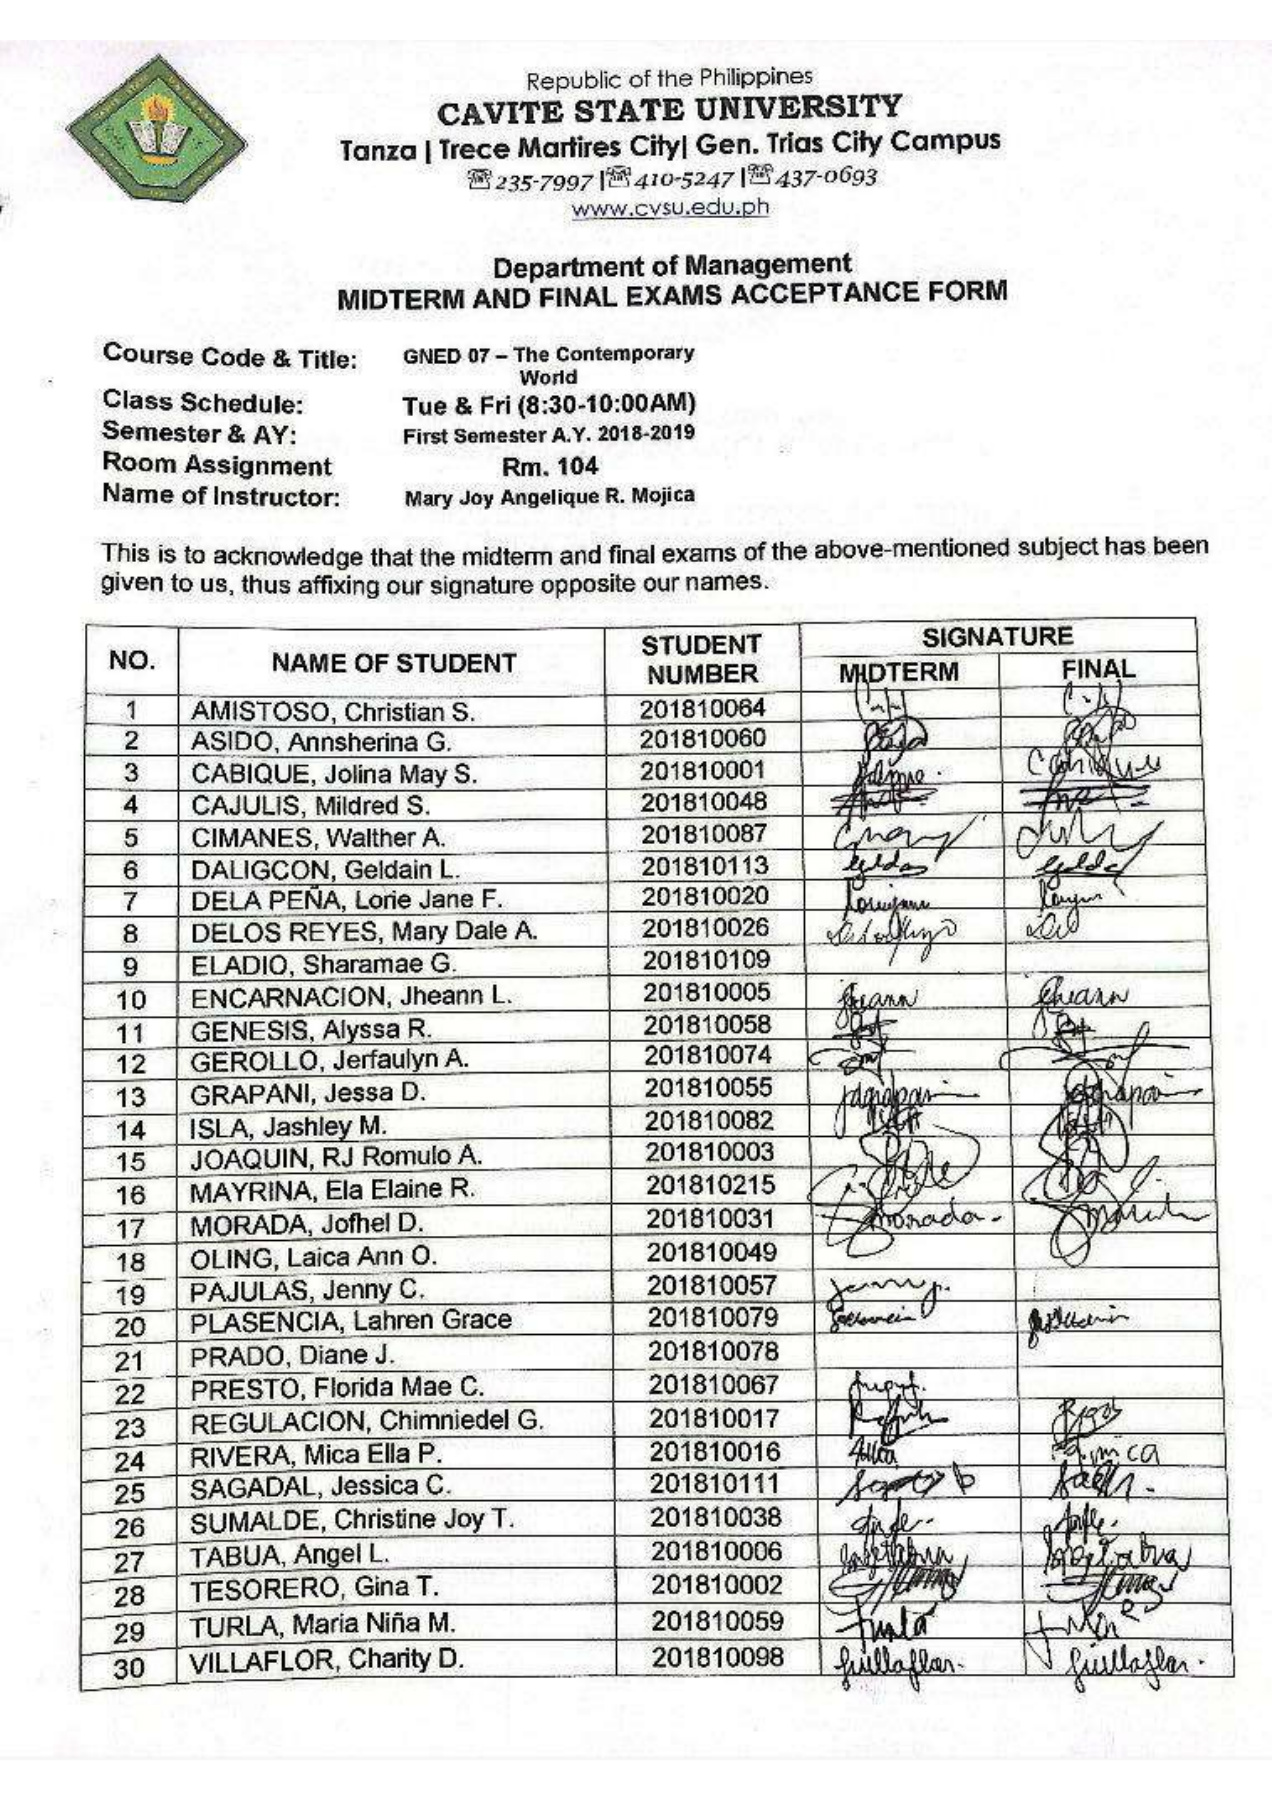 Republic of the Philippines
CAVITE STATE UNIVERSITY
Tanza | Trece Martires City| Gen. Trias City Campus
☏235-7997 |☏410-5247 |☏437-0693
www.cvsu.edu.ph
Department of Management
MIDTERM AND FINAL EXAMS ACCEPTANCE FORM
Course Code & Title: GNED 07 – The Contemporary
World
Class Schedule: Tue & Fri (8:30-10:00AM)
Semester & AY: First Semester A.Y. 2018-2019
Room Assignment Rm. 104
Name of Instructor: Mary Joy Angelique R. Mojica
This is to acknowledge that the midterm and final exams of the above-mentioned subject has been
given to us, thus affixing our signature opposite our names.
NO. NAME OF STUDENT STUDENT NUMBER SIGNATURE
MIDTERM FINAL
1 AMISTOSO, Christian S. 201810064
2 ASIDO, Annsherina G. 201810060
3 CABIQUE, Jolina May S. 201810001 Cabique
4 CAJULIS, Mildred S. 201810048
5 CIMANES, Walther A. 201810087
6 DALIGCON, Geldain L. 201810113
7 DELA PEÑA, Lorie Jane F. 201810020
8 DELOS REYES, Mary Dale A. 201810026
9 ELADIO, Sharamae G. 201810109
10 ENCARNACION, Jheann L. 201810005 Jheann Jheann
11 GENESIS, Alyssa R. 201810058
12 GEROLLO, Jerfaulyn A. 201810074
13 GRAPANI, Jessa D. 201810055 jdgrapani
14 ISLA, Jashley M. 201810082
15 JOAQUIN, RJ Romulo A. 201810003
16 MAYRINA, Ela Elaine R. 201810215
17 MORADA, Jofhel D. 201810031 morada
18 OLING, Laica Ann O. 201810049
19 PAJULAS, Jenny C. 201810057
20 PLASENCIA, Lahren Grace 201810079
21 PRADO, Diane J. 201810078
22 PRESTO, Florida Mae C. 201810067
23 REGULACION, Chimniedel G. 201810017
24 RIVERA, Mica Ella P. 201810016
25 SAGADAL, Jessica C. 201810111
26 SUMALDE, Christine Joy T. 201810038
27 TABUA, Angel L. 201810006
28 TESORERO, Gina T. 201810002
29 TURLA, Maria Niña M. 201810059 Turla
30 VILLAFLOR, Charity D. 201810098